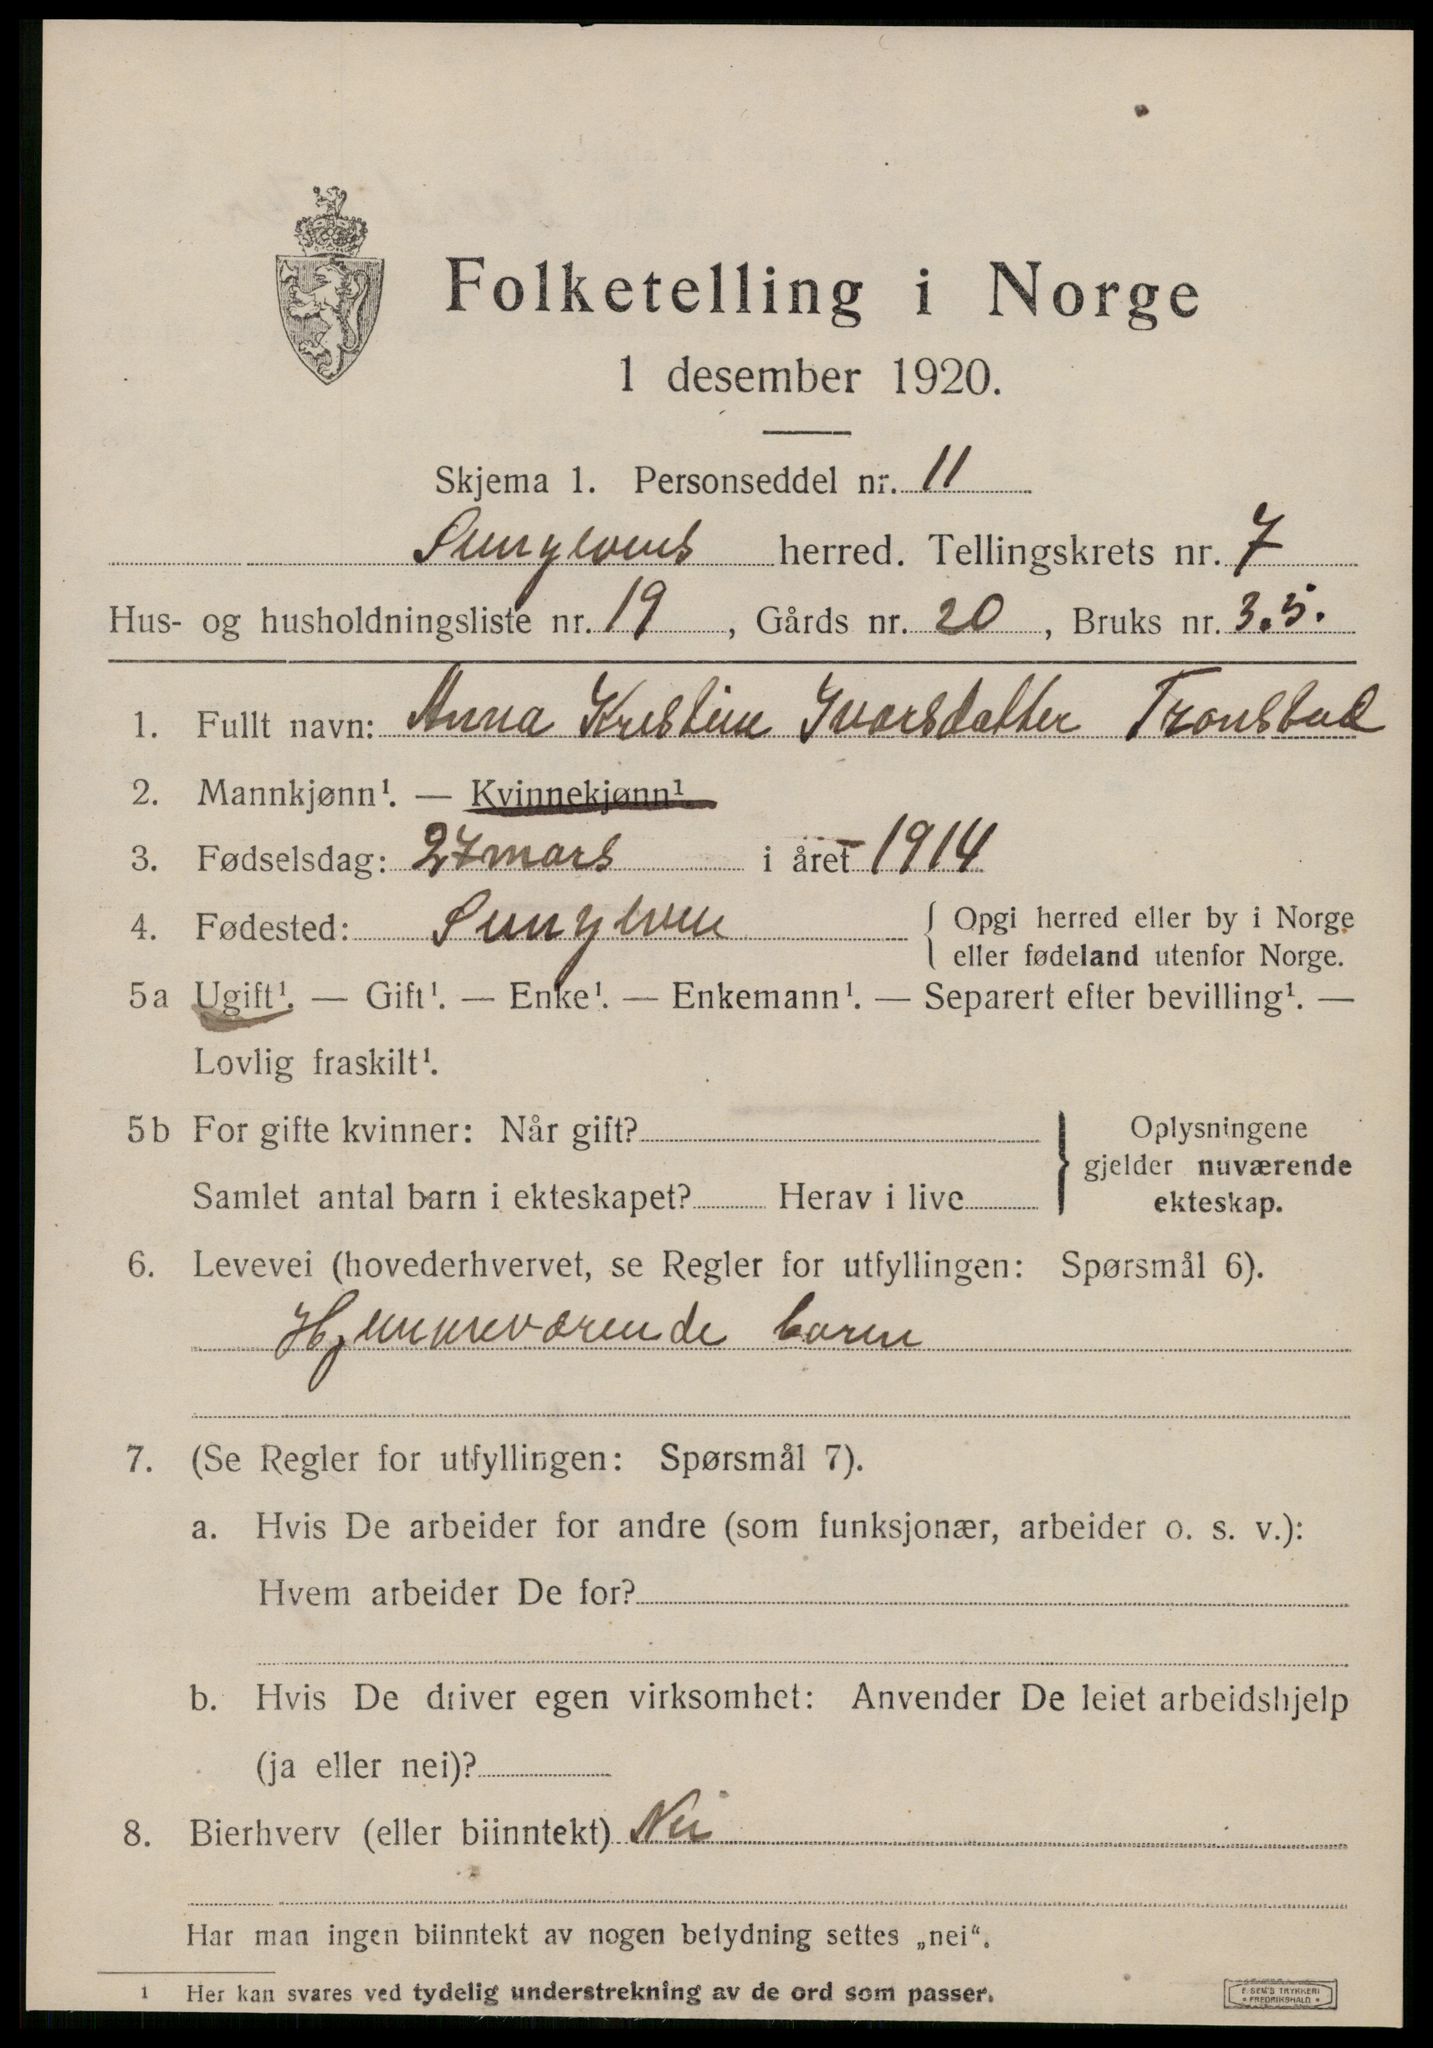 Folketelling i Norge
1 desember 1920.
Skjema 1. Personseddel nr. 11
Sunylvens herred. Tellingskrets nr. 7
Hus- og husholdningsliste nr. 19, Gårds nr. 20, Bruks nr. 3.5.
1. Fullt navn: Anna Kristine Ivarsdatter Tronstad
2. Mannkjønn¹. — Kvinnekjønn¹.
3. Fødselsdag: 27 mars i året 1914
4. Fødested: Sunylven { Opgi herred eller by i Norge
eller fødeland utenfor Norge.
5a Ugift¹. — Gift¹. — Enke¹. — Enkemann¹. — Separert efter bevilling¹. —
Lovlig fraskilt¹.
5b For gifte kvinner: Når gift? } Oplysningene
gjelder nuværende
Samlet antal barn i ekteskapet? Herav i live
ekteskap.
6. Levevei (hovederhvervet, se Regler for utfyllingen: Spørsmål 6).
Hjemmeværende barn
7. (Se Regler for utfyllingen: Spørsmål 7).
a. Hvis De arbeider for andre (som funksjonær, arbeider o. s. v.):
Hvem arbeider De for?
b. Hvis De driver egen virksomhet: Anvender De leiet arbeidshjelp
(ja eller nei)?
8. Bierhverv (eller biinntekt) Nei
Har man ingen biinntekt av nogen betydning settes „nei“.
1 Her kan svares ved tydelig understrekning av de ord som passer.
E. SEM'S TRYKKERI
• FREDRIKSHALD •